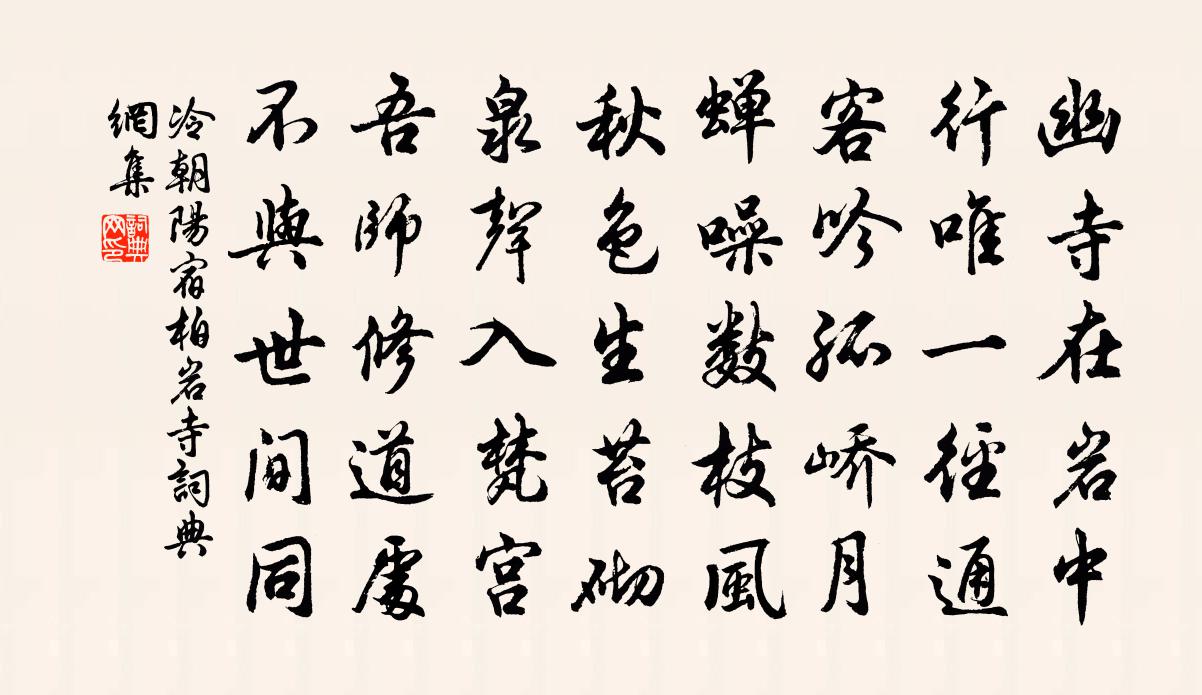 幽寺在岩中
行唯一徑通
客吟孤嶠月
蟬噪數枝風
秋色生苔砌
泉聲入梵宮
吾師修道處
不與世間同
冷朝陽宿柏岩寺詞典
網集
詞典網印